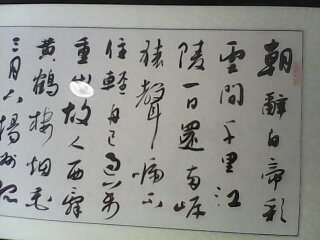 朝辭白帝彩
雲間千里江
陵一日還兩岸
猿聲啼不
住輕舟已過萬
重山故人西辭
黃鶴樓烟花
三月下揚州